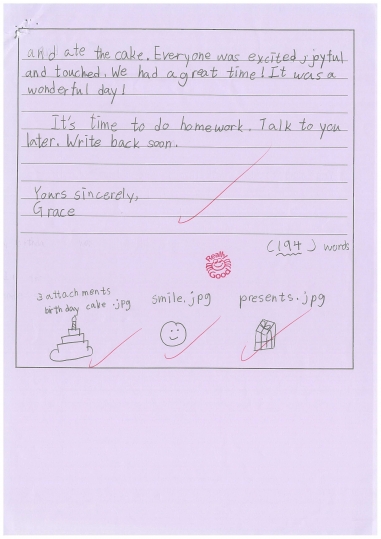 and ate the cake. Everyone was excited, joyful
and touched. We had a great time! It was a
wonderful day!
It's time to do homework. Talk to you
later. Write back soon.
Yours sincerely,
Grace
(194) words
Really
Good
3 attachments
birthday cake .jpg
smile.jpg
presents.jpg